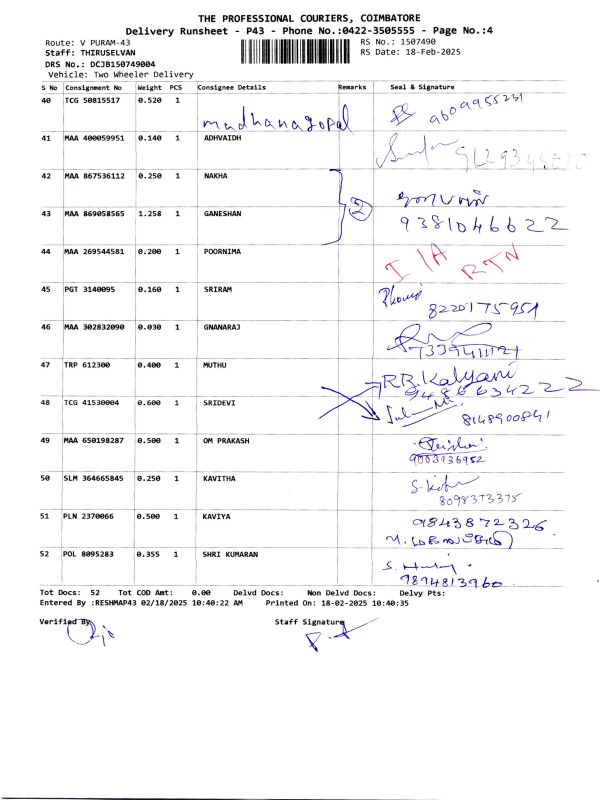 THE PROFESSIONAL COURIERS, COIMBATORE
Delivery Runsheet - P43 - Phone No.:0422-3505555 - Page No.:4
Route: V PURAM-43 RS No.: 1507490
Staff: THIRUSELVAN RS Date: 18-Feb-2025
DRS No.: DCJB150749004
Vehicle: Two Wheeler Delivery
S No Consignment No Weight PCS Consignee Details Remarks Seal & Signature
40 TCG 50815517 0.520 1 madhanagopal 9609955231
41 MAA 400059951 0.140 1 ADHVAIDH
42 MAA 867536112 0.250 1 NAKHA
43 MAA 869058565 1.258 1 GANESHAN 2 9381046622
44 MAA 269544581 0.200 1 POORNIMA I/A RTN
45 PGT 3140095 0.160 1 SRIRAM 8220175951
46 MAA 302832090 0.030 1 GNANARAJ
47 TRP 612300 0.400 1 MUTHU R.R.Kalyani 9486634222
48 TCG 41530004 0.600 1 SRIDEVI 8148900841
49 MAA 650198287 0.500 1 OM PRAKASH 9003936952
50 SLM 364665845 0.250 1 KAVITHA 8098373375
51 PLN 2370066 0.500 1 KAVIYA 9843872326
52 POL 8095283 0.355 1 SHRI KUMARAN 9894813960
Tot Docs: 52 Tot COD Amt: 0.00 Delvd Docs: Non Delvd Docs: Delvy Pts:
Entered By :RESHMAP43 02/18/2025 10:40:22 AM Printed On: 18-02-2025 10:40:35
Verified By Staff Signature